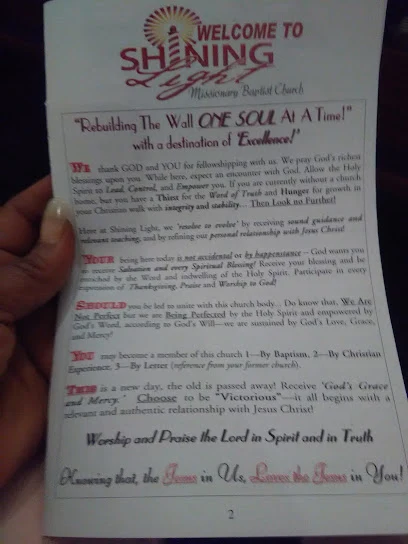 WELCOME TO
SHINING
Light
Missionary Baptist Church
"Rebuilding The Wall ONE SOUL At A Time!"
with a destination of 'Excellence!'
WE thank GOD and YOU for fellowshipping with us. We pray God's richest
blessings upon you. While here, expect an encounter with God. Allow the Holy
Spirit to Lead, Control, and Empower you. If you are currently without a church
home, but you have a Thirst for the Word of Truth and Hunger for growth in
your Christian walk with integrity and stability... Then Look no Further!
Here at Shining Light, we 'resolve to evolve' by receiving sound guidance and
relevant teaching, and by refining our personal relationship with Jesus Christ!
YOUR being here today is not accidental or by happenstance—God wants you
to receive Salvation and every Spiritual Blessing! Receive your blessing and be
enriched by the Word and indwelling of the Holy Spirit. Participate in every
expression of Thanksgiving, Praise and Worship to God!
SHOULD you be led to unite with this church body... Do know that, We Are
Not Perfect but we are Being Perfected by the Holy Spirit and empowered by
God's Word, according to God's Will—we are sustained by God's Love, Grace,
and Mercy!
YOU may become a member of this church 1—By Baptism, 2—By Christian
Experience, 3—By Letter (reference from your former church).
THIS is a new day, the old is passed away! Receive 'God's Grace
and Mercy.' Choose to be "Victorious"—it all begins with a
relevant and authentic relationship with Jesus Christ!
Worship and Praise the Lord in Spirit and in Truth
Knowing that, the Jesus in Us, Loves the Jesus in You!
2